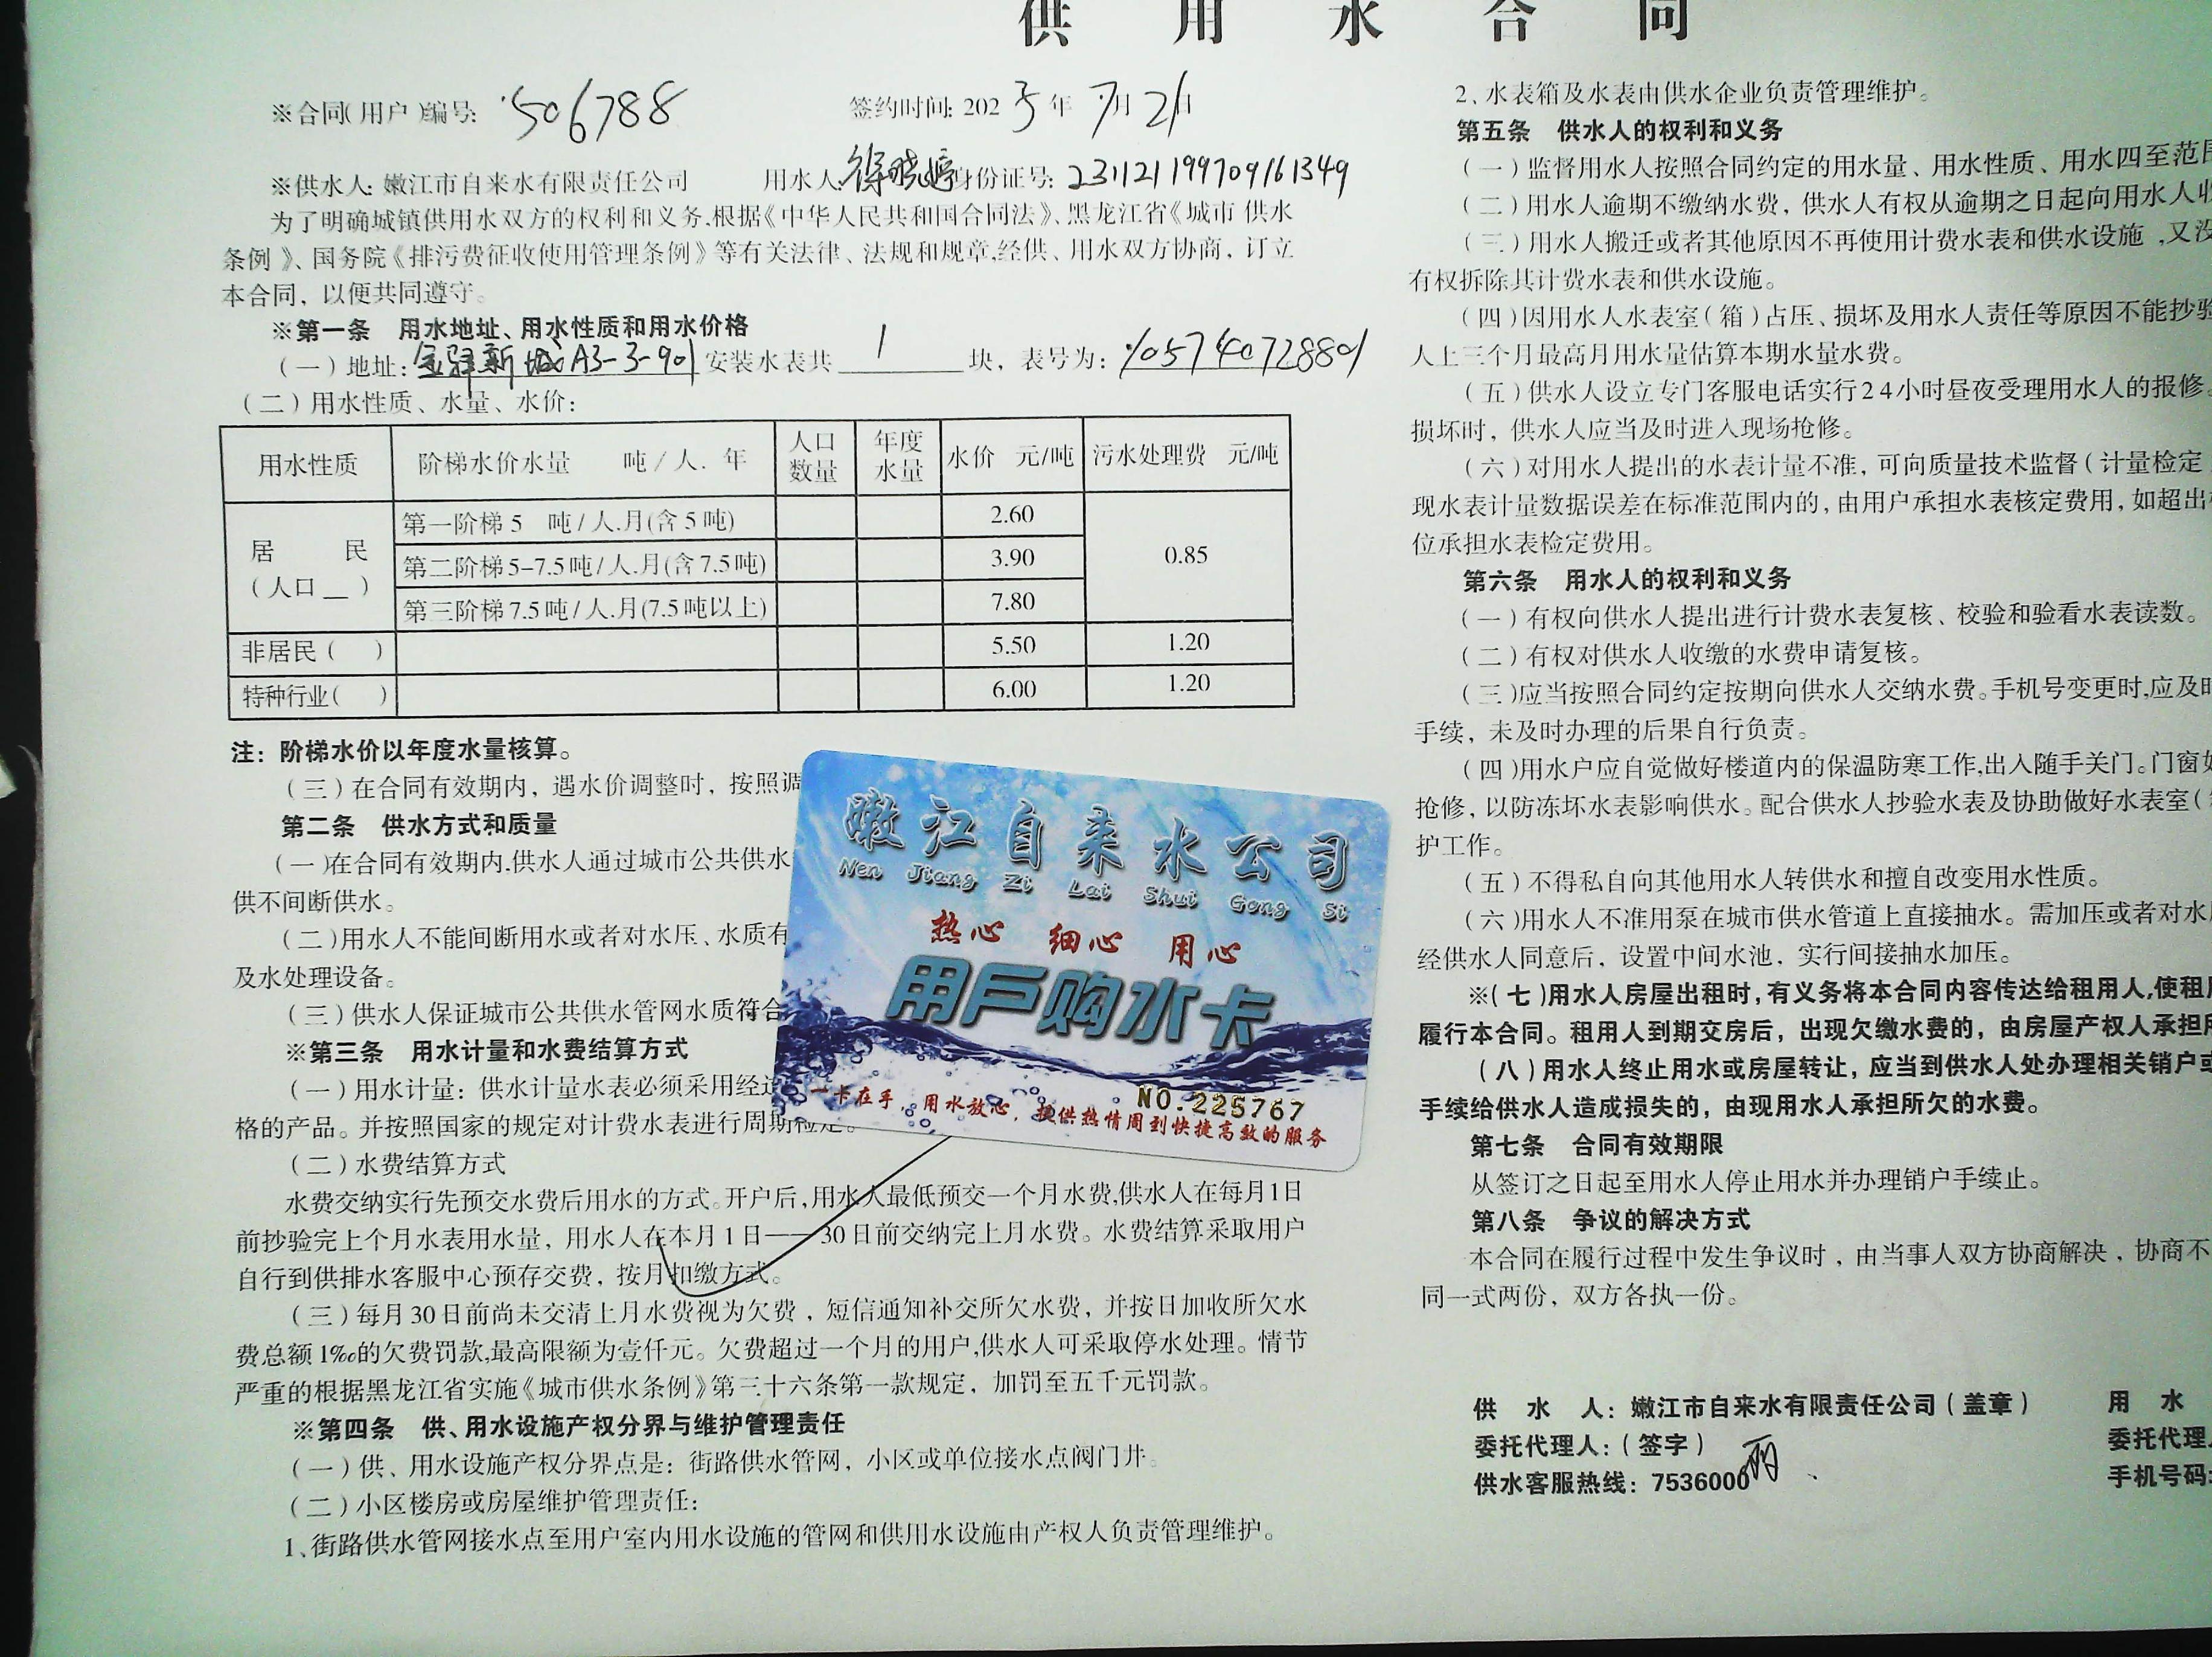 供用水合同
※合同(用户)编号: 506788 签约时间: 2025年7月21日
※供水人: 嫩江市自来水有限责任公司 用水人: 徐晓婷 身份证号: 231121199709161349
为了明确城镇供用水双方的权利和义务,根据《中华人民共和国合同法》、黑龙江省《城市供水
条例》、国务院《排污费征收使用管理条例》等有关法律、法规和规章,经供、用水双方协商，订立
本合同，以便共同遵守。
※第一条 用水地址、用水性质和用水价格
(一)地址: 金驿新城A3-3-901 安装水表共 1 块，表号为:
(二)用水性质、水量、水价:
用水性质 阶梯水价水量 吨/人.年 人口数量 年度水量 水价 元/吨 污水处理费 元/吨
居民(人口__) 第一阶梯5 吨/人.月(含5吨) 2.60 0.85
第二阶梯5-7.5吨/人.月(含7.5吨) 3.90
第三阶梯7.5吨/人.月(7.5吨以上) 7.80
非居民( ) 5.50 1.20
特种行业( ) 6.00 1.20
注: 阶梯水价以年度水量核算。
(三)在合同有效期内，遇水价调整时，按照调
第二条 供水方式和质量
(一)在合同有效期内,供水人通过城市公共供水
供不间断供水。
(二)用水人不能间断用水或者对水压、水质有
及水处理设备。
(三)供水人保证城市公共供水管网水质符合
※第三条 用水计量和水费结算方式
(一)用水计量: 供水计量水表必须采用经
格的产品。并按照国家的规定对计费水表进行周期检定。
(二)水费结算方式
水费交纳实行先预交水费后用水的方式。开户后,用水人最低预交一个月水费,供水人在每月1日
前抄验完上个月水表用水量，用水人在本月1日——30日前交纳完上月水费。水费结算采取用户
自行到供排水客服中心预存交费，按月扣缴方式。
(三)每月30日前尚未交清上月水费视为欠费，短信通知补交所欠水费，并按日加收所欠水
费总额1‰的欠费罚款,最高限额为壹仟元。欠费超过一个月的用户,供水人可采取停水处理。情节
严重的根据黑龙江省实施《城市供水条例》第三十六条第一款规定，加罚至五千元罚款。
※第四条 供、用水设施产权分界与维护管理责任
(一)供、用水设施产权分界点是: 街路供水管网，小区或单位接水点阀门井。
(二)小区楼房或房屋维护管理责任:
1、街路供水管网接水点至用户室内用水设施的管网和供用水设施由产权人负责管理维护。
嫩江自来水公司
Nen Jiang Zi Lai Shui Gong Si
热心 细心 用心
用户购水卡
NO.225767
一卡在手，用水放心，提供热情周到快捷高效的服务
2、水表箱及水表由供水企业负责管理维护。
第五条 供水人的权利和义务
(一)监督用水人按照合同约定的用水量、用水性质、用水四至范围
(二)用水人逾期不缴纳水费，供水人有权从逾期之日起向用水人收
(三)用水人搬迁或者其他原因不再使用计费水表和供水设施,又没
有权拆除其计费水表和供水设施。
(四)因用水人水表室(箱)占压、损坏及用水人责任等原因不能抄验
人上三个月最高月用水量估算本期水量水费。
(五)供水人设立专门客服电话实行24小时昼夜受理用水人的报修。
损坏时，供水人应当及时进入现场抢修。
(六)对用水人提出的水表计量不准，可向质量技术监督(计量检定
现水表计量数据误差在标准范围内的，由用户承担水表核定费用，如超出
位承担水表检定费用。
第六条 用水人的权利和义务
(一)有权向供水人提出进行计费水表复核、校验和验看水表读数。
(二)有权对供水人收缴的水费申请复核。
(三)应当按照合同约定按期向供水人交纳水费。手机号变更时,应及时
手续，未及时办理的后果自行负责。
(四)用水户应自觉做好楼道内的保温防寒工作,出入随手关门。门窗如
抢修，以防冻坏水表影响供水。配合供水人抄验水表及协助做好水表室(
护工作。
(五)不得私自向其他用水人转供水和擅自改变用水性质。
(六)用水人不准用泵在城市供水管道上直接抽水。需加压或者对水
经供水人同意后，设置中间水池，实行间接抽水加压。
※(七)用水人房屋出租时，有义务将本合同内容传达给租用人,使租用
履行本合同。租用人到期交房后，出现欠缴水费的，由房屋产权人承担所
(八)用水人终止用水或房屋转让，应当到供水人处办理相关销户或
手续给供水人造成损失的，由现用水人承担所欠的水费。
第七条 合同有效期限
从签订之日起至用水人停止用水并办理销户手续止。
第八条 争议的解决方式
本合同在履行过程中发生争议时，由当事人双方协商解决，协商不
同一式两份，双方各执一份。
供水人: 嫩江市自来水有限责任公司(盖章) 用水
委托代理人:(签字) 委托代理
供水客服热线: 7536000 手机号码: